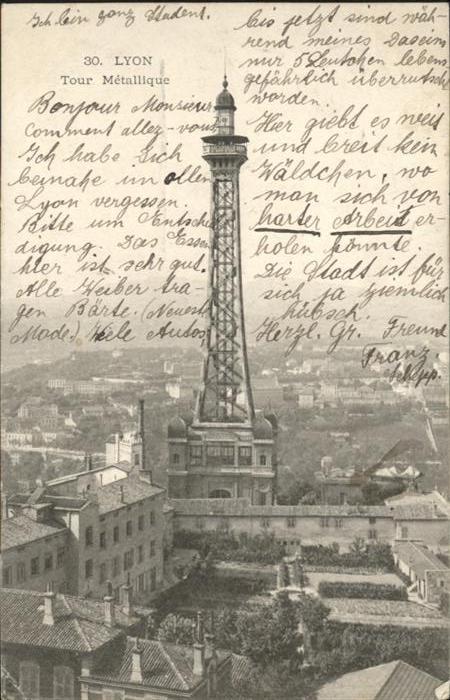 Ich bin ganz Student.
30. LYON
Tour Métallique
Bonjour Monsieur
Comment allez-vous
Ich habe Sich
beynahe in allen
Lyon vergessen.
Bitte um Entschul
digung. Das Essen
hier ist sehr gut.
Alle Weiber tra-
gen Bärte. (Neueste
Mode.) Viele Autos
bis jetzt sind wäh-
rend meines Daseins
nur 5 Leutchen lebens
gefährlich überrutscht
worden.
Hier giebt es weit
und breit kein
Wäldchen, wo
man sich von
harter Arbeit er-
holen könnte.
Die Stadt ist für
sich ja ziemlich
hübsch.
Herzl. Gr. Freund
Franz